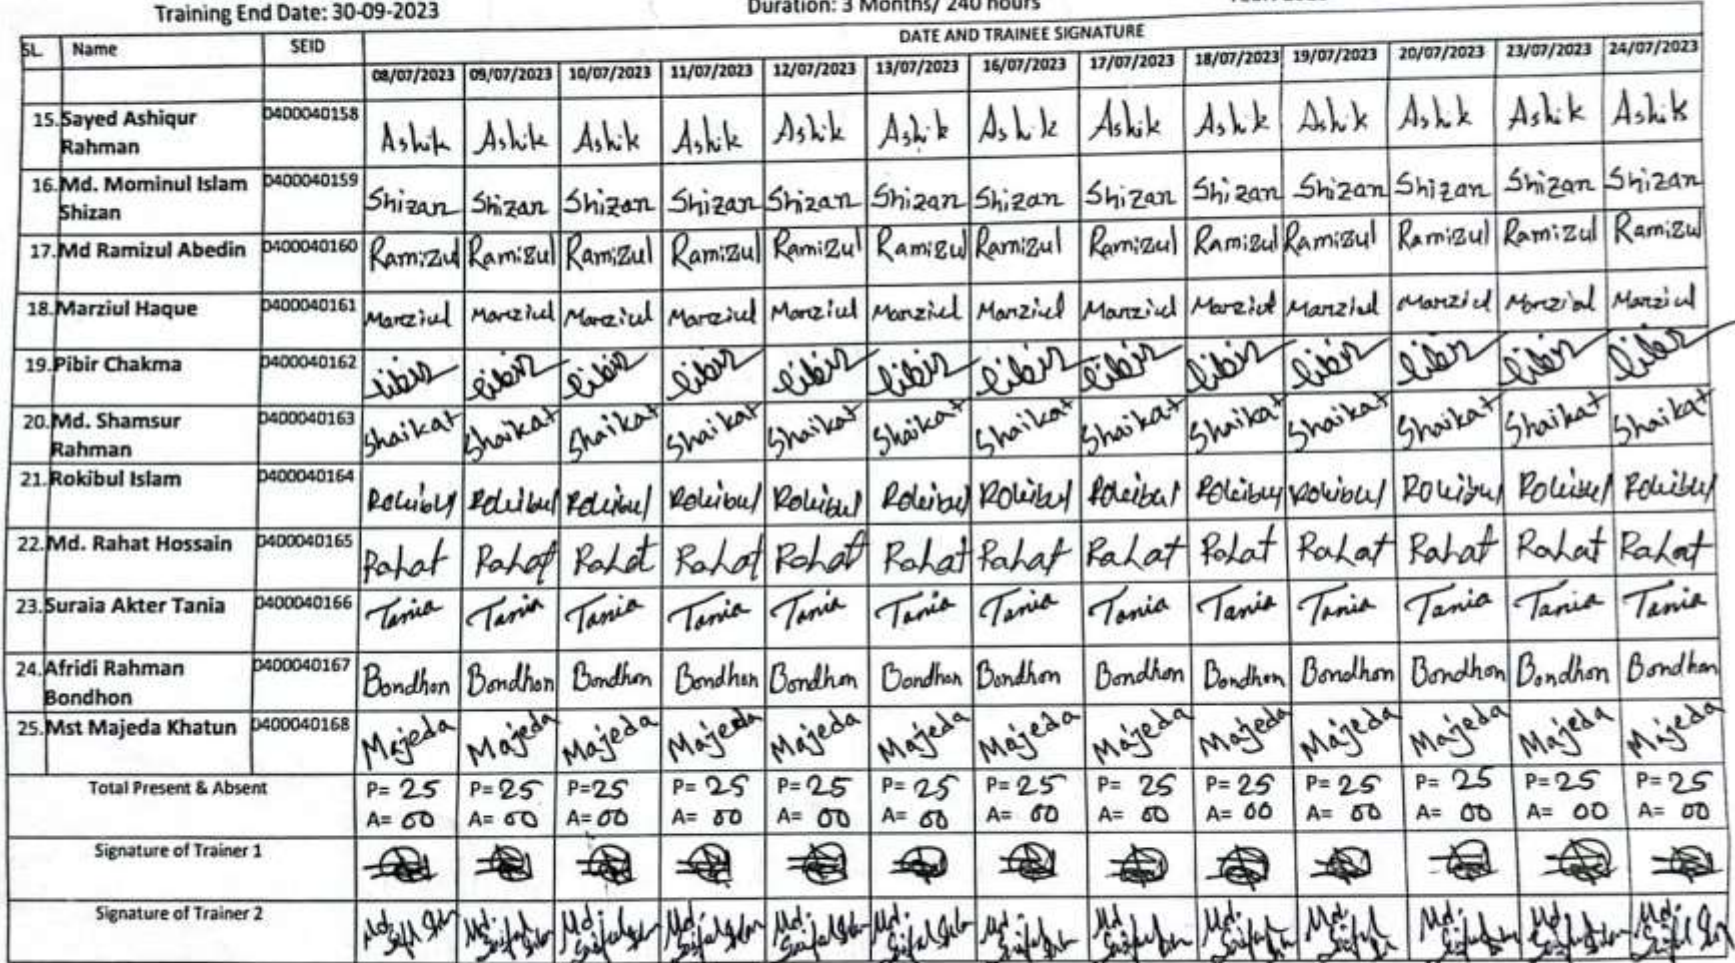 Training End Date: 30-09-2023 Duration: 3 Months/ 240 hours
SL. Name SEID DATE AND TRAINEE SIGNATURE
08/07/2023 09/07/2023 10/07/2023 11/07/2023 12/07/2023 13/07/2023 16/07/2023 17/07/2023 18/07/2023 19/07/2023 20/07/2023 23/07/2023 24/07/2023
15. Sayed Ashiqur 0400040158
Rahman Ashik Ashik Ashik Ashik Ashik Ashik Ashik Ashik Ashik Ashik Ashik Ashik Ashik
16. Md. Mominul Islam 0400040159
Shizan Shizan Shizan Shizan Shizan Shizan Shizan Shizan Shizan Shizan Shizan Shizan Shizan Shizan
17. Md Ramizul Abedin 0400040160 Ramizul Ramizul Ramizul Ramizul Ramizul Ramizul Ramizul Ramizul Ramizul Ramizul Ramizul Ramizul Ramizul
18. Marziul Haque 0400040161 Marziul Marziul Marziul Marziul Marziul Marziul Marziul Marziul Marziul Marziul Marziul Marziul Marziul
19. Pibir Chakma 0400040162
20. Md. Shamsur 0400040163
Rahman Shaikat Shaikat Shaikat Shaikat Shaikat Shaikat Shaikat Shaikat Shaikat Shaikat Shaikat Shaikat Shaikat
21. Rokibul Islam 0400040164 Rokibul Rokibul Rokibul Rokibul Rokibul Rokibul Rokibul Rokibul Rokibul Rokibul Rokibul Rokibul Rokibul
22. Md. Rahat Hossain 0400040165 Rahat Rahat Rahat Rahat Rahat Rahat Rahat Rahat Rahat Rahat Rahat Rahat Rahat
23. Suraia Akter Tania 0400040166 Tania Tania Tania Tania Tania Tania Tania Tania Tania Tania Tania Tania Tania
24. Afridi Rahman 0400040167
Bondhon Bondhon Bondhon Bondhon Bondhon Bondhon Bondhon Bondhon Bondhon Bondhon Bondhon Bondhon Bondhon Bondhon
25. Mst Majeda Khatun 0400040168 Majeda Majeda Majeda Majeda Majeda Majeda Majeda Majeda Majeda Majeda Majeda Majeda Majeda
Total Present & Absent P= 25 P= 25 P= 25 P= 25 P= 25 P= 25 P= 25 P= 25 P= 25 P= 25 P= 25 P= 25 P= 25
A= 00 A= 00 A= 00 A= 00 A= 00 A= 00 A= 00 A= 00 A= 00 A= 00 A= 00 A= 00 A= 00
Signature of Trainer 1
Signature of Trainer 2 Md. Md. Md. Md. Md. Md. Md. Md. Md. Md. Md. Md. Md.